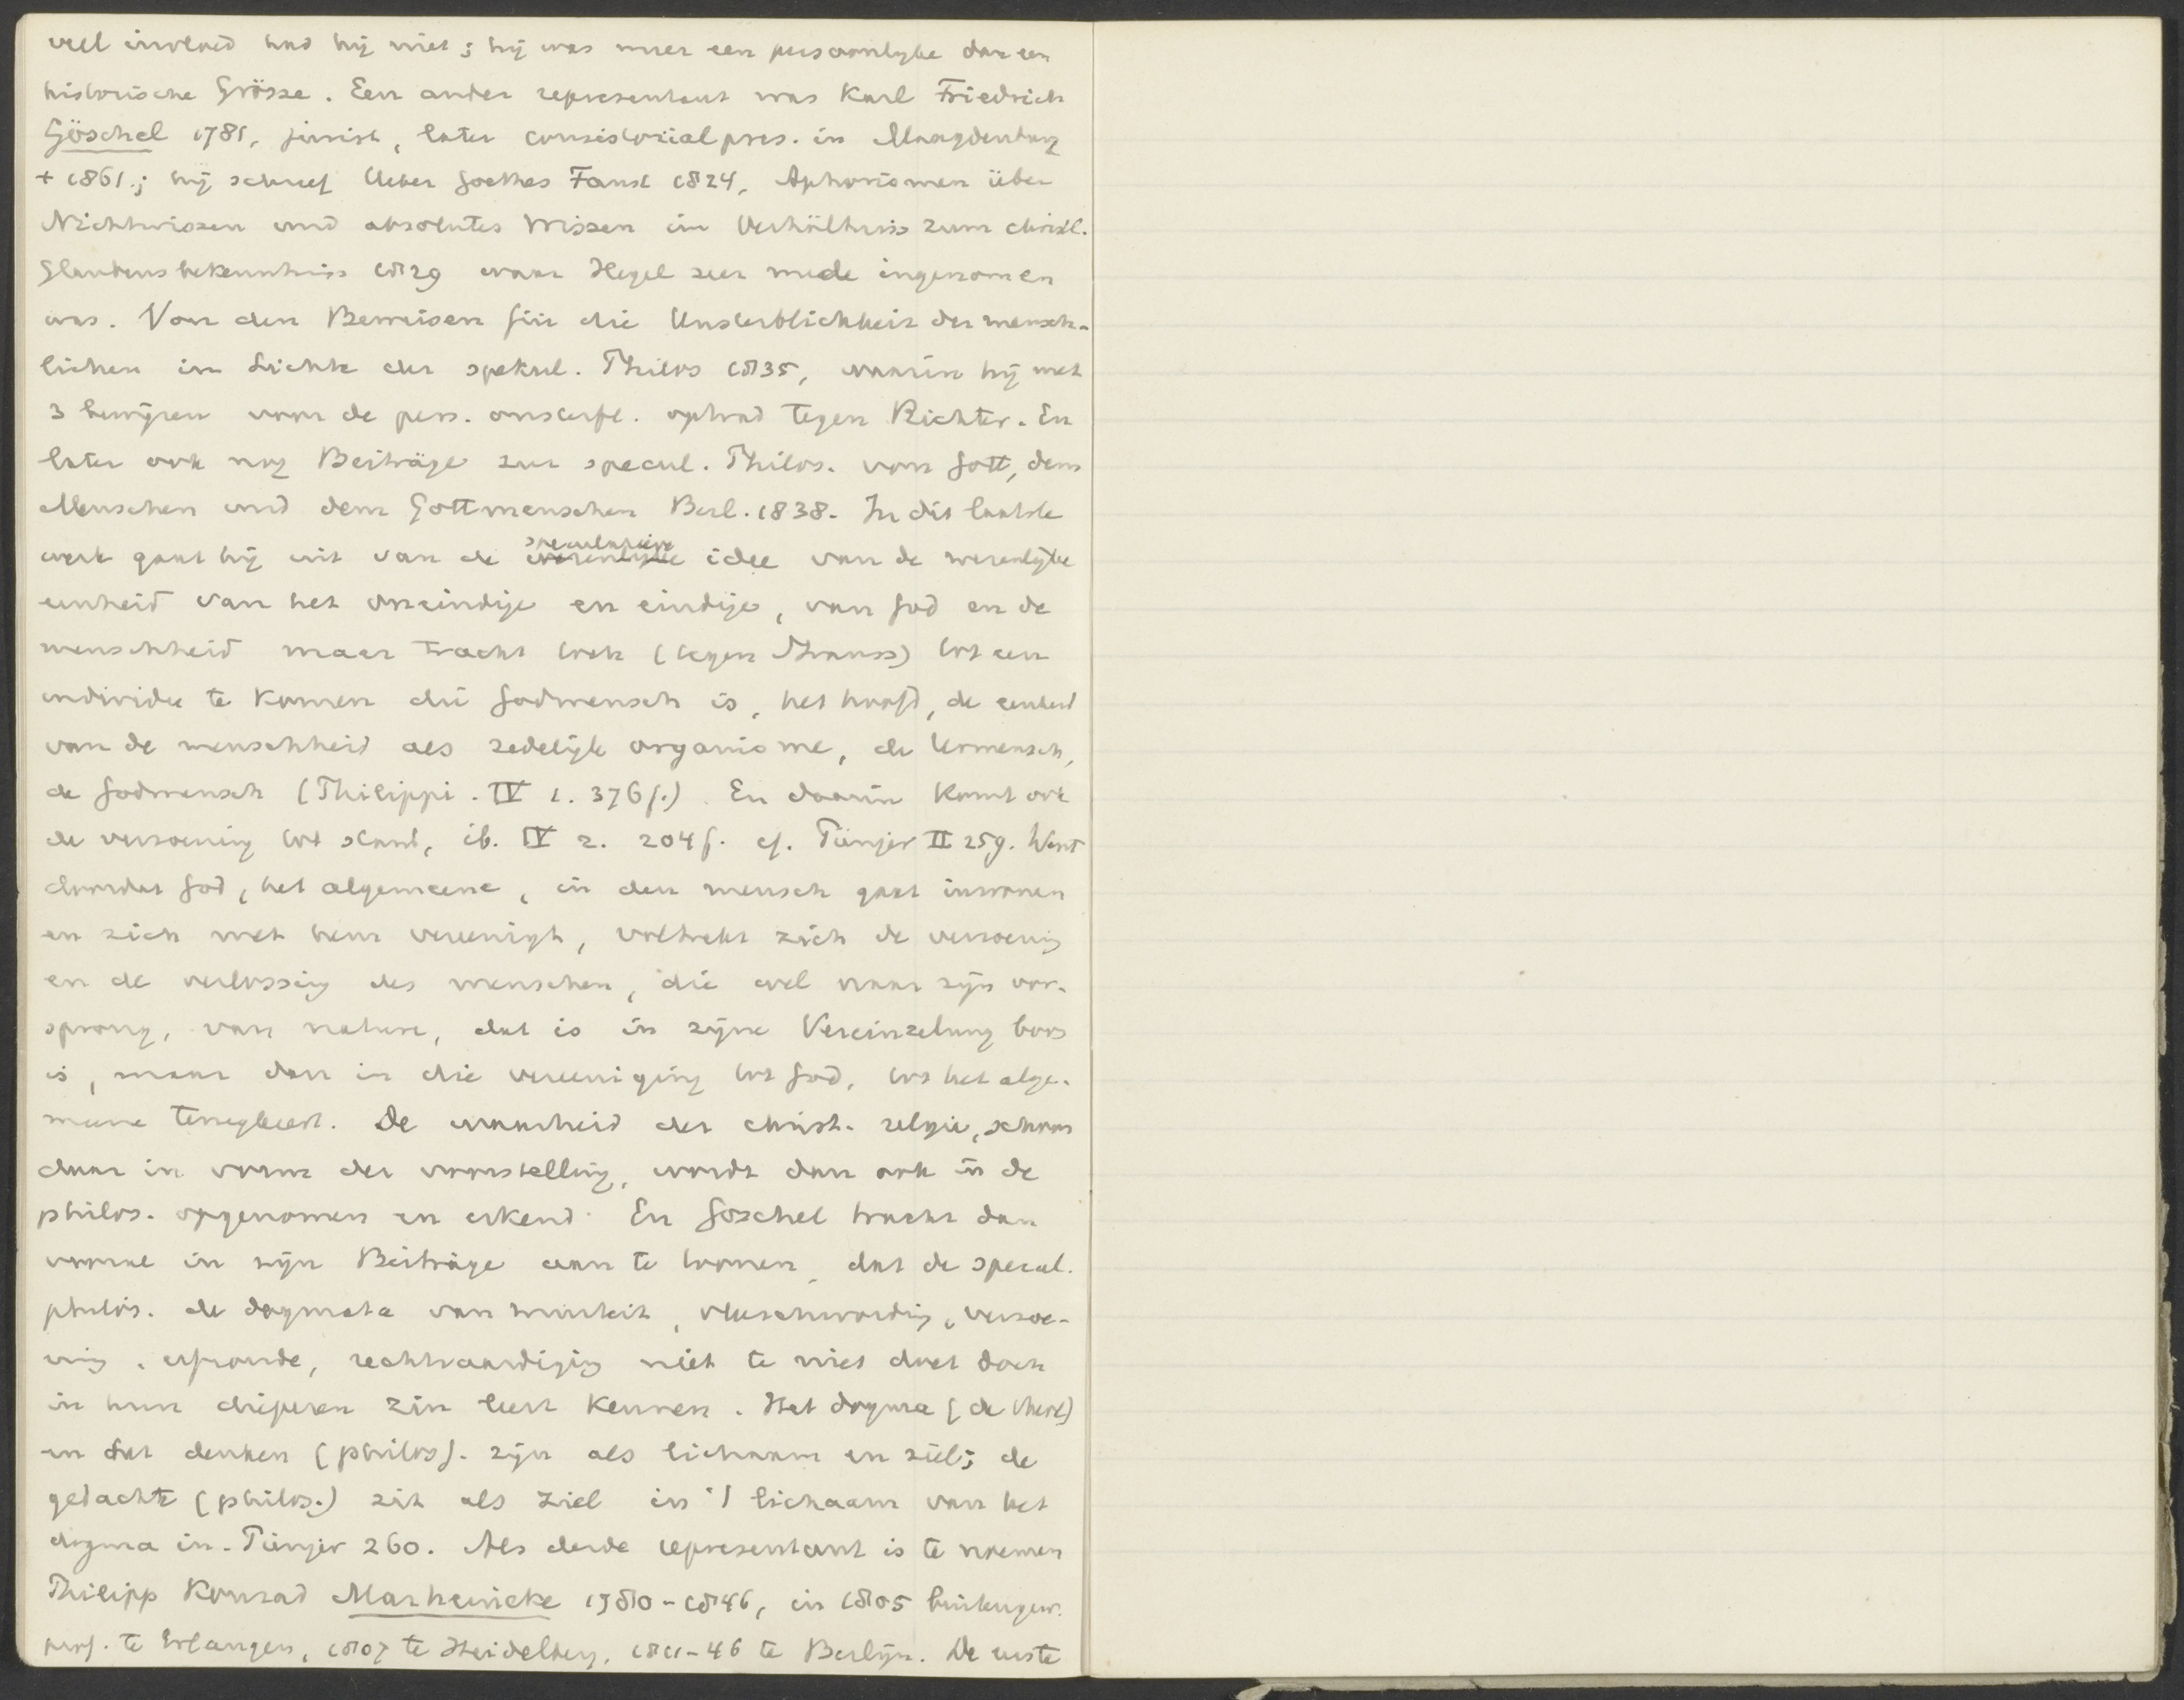 veel invloed had hij niet; hij was meer een persoonlyke dan een
historische Grösse. Een ander representant was Karl Friedrich
Göschel 1781, jurist, later consistorialpres. in Maagdenburg
+ 1861; hij schreef Ueber Goethes Faust 1824, Aphorismen über
Nichtwissen und absolutes Wissen im Verhältniss zum christl.
Glaubensbekenntniss 1829 waar Hegel zeer mede ingenomen
was. Von den Beweisen für die Unsterblichkeit der mensch-
lichen im Lichte der spekul. Philos 1835, waarin hij met
3 bewijzen voor de pers. onsterfl. optrad tegen Richter. En
later ook nog Beiträge zur specul. Philos. von Gott, dem
Menschen und dem Gottmenschen Berl. 1838. In dit laatste
werk gaat hij uit van de speculatieve idee van de wezenlijke
eenheid van het oneindige en eindige, van God en de
menschheid maar tracht toch (tegen Strauss) tot een
individu te komen die Godmensch is, het hoofd, de eenheid
van de menschheid als zedelijk organisme, de Urmensch,
de Godmensch (Philippi. IV 1. 376f.). En daarin komt ook
de verzoening tot stand, ib. IV 2. 204f. cf. Pünjer II 259. Want
doordat God, het algemeene, in den mensch gaat inwonen
en zich met hem vereenigt, voltrekt zich de verzoening
en de verlossing des menschen, die wel naar zijn oor-
sprong, van nature, dat is in zijne Vereinzelung boos
is, maar dan in die vereeniging tot God, tot het alge-
meene terugkeert. De waarheid der christ. religie, schoon
daar in vorm der voorstelling, wordt dan ook in de
philos. opgenomen en erkend. En Göschel tracht dan
vooral in zijn Beiträge aan te toonen, dat de specul.
philos. de dogmata van triniteit, vleeschwording, verzoe-
ning, erfzonde, rechtvaardiging niet te niet doet doch
in hun dieperen zin leert kennen. Het dogma (de kerk)
en het denken (philos). zijn als lichaam en ziel; de
gedachte (philos.) zit als ziel in 't lichaam van het
dogma in. Pünjer 260. Als derde representant is te noemen
Philipp Konrad Marheinicke 1780-1846, in 1805 buitengew.
prof. te Erlangen, 1807 te Heidelberg, 1811-46 te Berlijn. De eerste